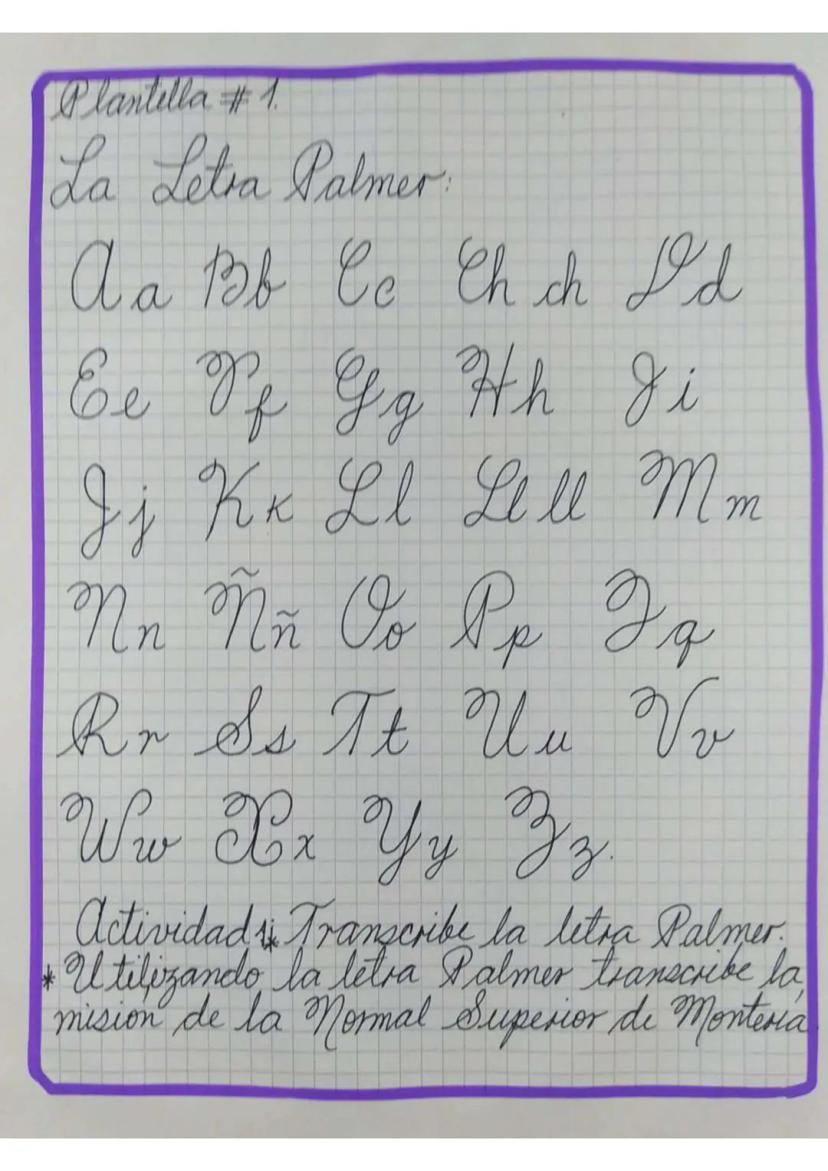 Plantilla # 1.
La Letra Palmer:
Aa Bb Cc Ch ch Dd
Ee Ff Gg Hh Ii
Jj Kk Ll Ll ll Mm
Nn Ññ Oo Pp Qq
Rr Ss Tt Uu Vv
Ww Xx Yy Zz.
Actividad 1: Transcribe la letra Palmer.
* Utilizando la letra Palmer transcribe la
misión de la Normal Superior de Montería